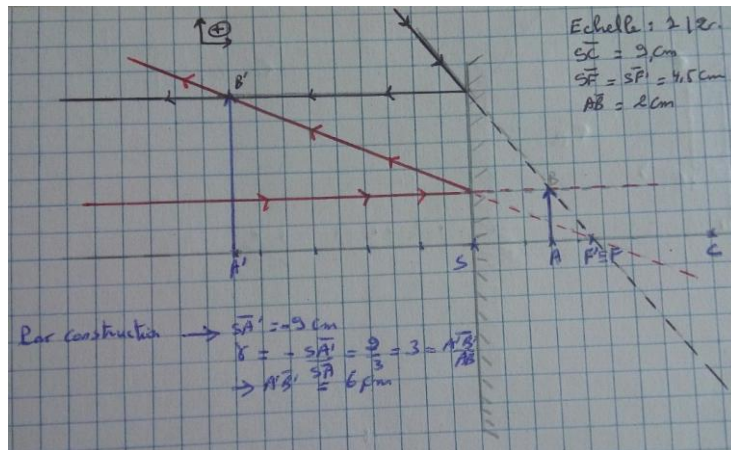 +
Echelle : 1 / 2.
SC = 9 cm
SF = SF' = 4,5 cm
AB = 2 cm
B'
B
A'
S
A
F' ≡ F
C
Par construction → SA' = -9 cm
γ = - SA'/SA = 9/3 = 3 = A'B'/AB
→ A'B' = 6 cm